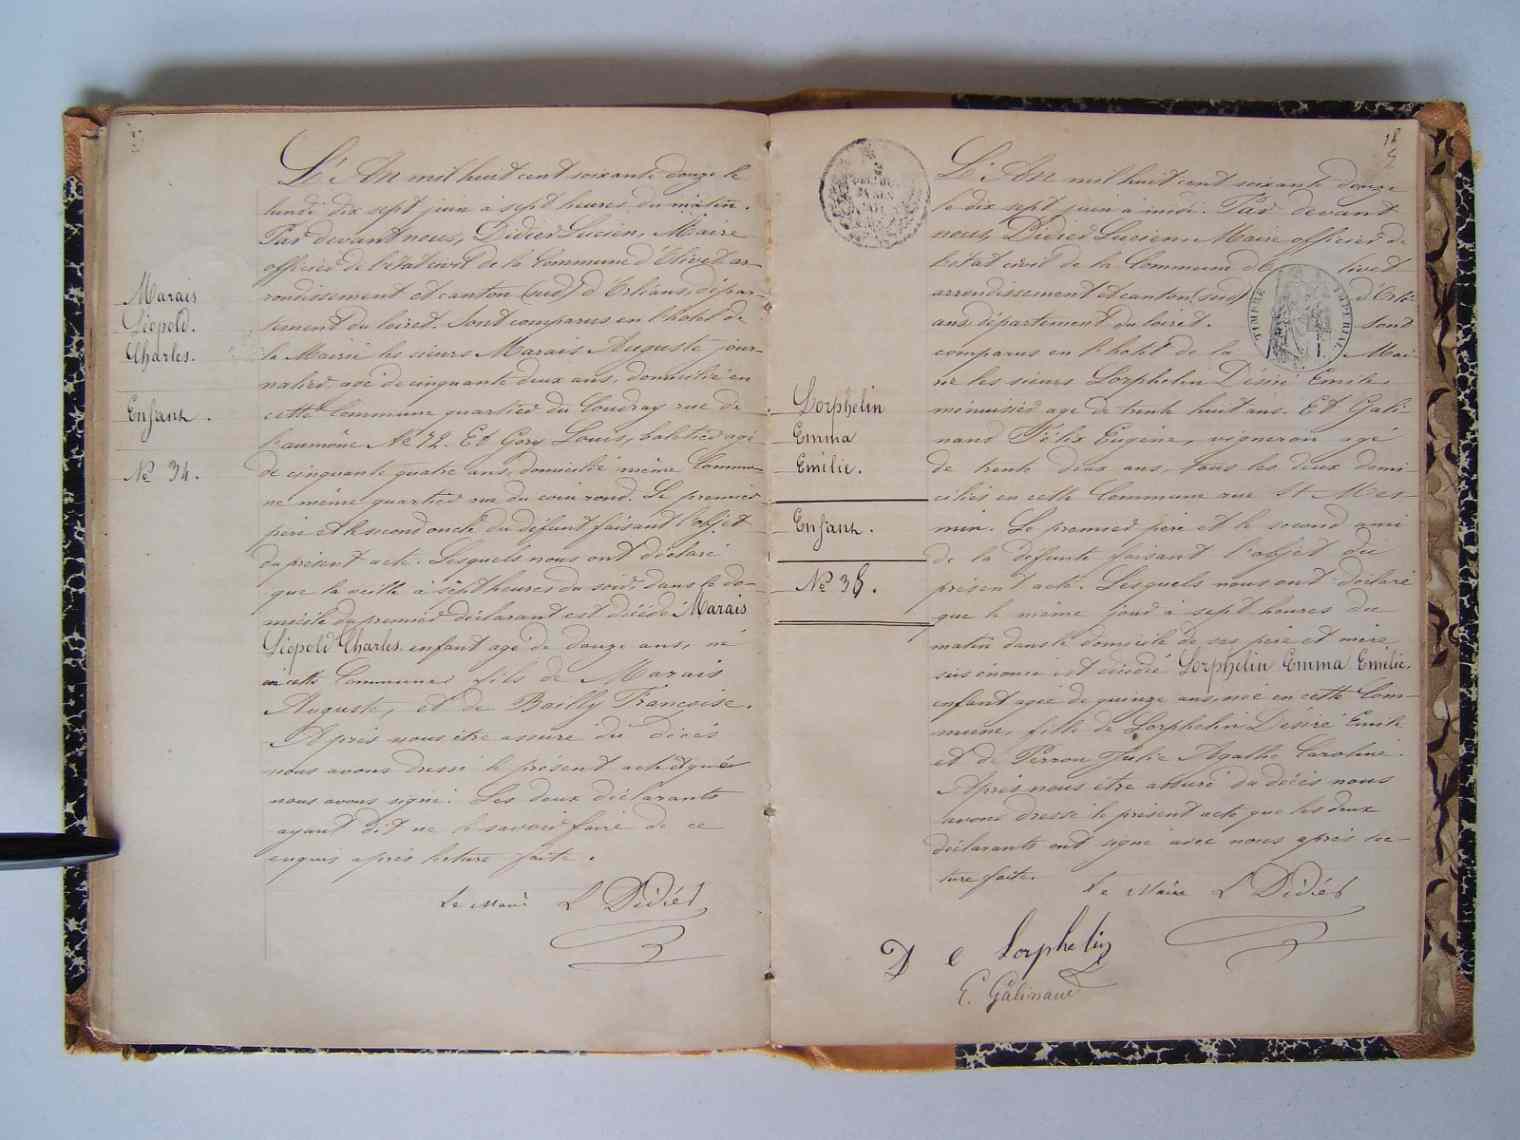 L'An mil huit cent soixante douze le
lundi dix sept juin à sept heures du matin.
Par devant nous, Didier Lucien, Maire
officier de l'état civil de la Commune d'Olivet ar-
rondissement et canton (sud) d'Orléans, dépar-
tement du loiret. Sont comparus en l'hotel de
la Mairie les sieurs Marais Auguste jour-
nalier agé de cinquante deux ans, domicilié en
cette Commune quartier du Coudray rue de
l'aumône No 72. Et Gory Louis, agé
de cinquante quatre ans, domicilié même Commu-
ne même quartier rue du coin rond. Le premier
père et le second oncle du défunt faisant l'objet
du présent acte. Lesquels nous ont déclaré
que la veille à sept heures du soir, dans le do-
micile du premier déclarant est décédé Marais
Léopold Charles enfant agé de douze ans, né
en cette Commune, fils de Marais
Auguste, et de Bailly Françoise.
Après nous être assuré du décès
nous avons dressé le présent acte que
nous avons signé. Les deux déclarants
ayant dit ne le savoir faire de ce
enquis après lecture faite.
Le Maire L Didier
Marais
Léopold.
Charles.
Enfant.
No 34.
18
L'An mil huit cent soixante douze
le dix sept juin à midi. Par devant
nous, Didier Lucien, Maire officier de
l'état civil de la Commune d'Olivet
arrondissement et canton (sud) d'Orlé-
ans, département du loiret. Sont
comparus en l'hotel de la Mai-
rie les sieurs Lorphelin Désiré Emile,
menuisier agé de trente huit ans. Et Gali-
naud Félix Eugène, vigneron agé
de trente deux ans, tous les deux domi-
ciliés en cette Commune rue St Mes-
min. Le premier père et le second ami
de la défunte faisant l'objet du
présent acte. Lesquels nous ont déclaré
que le même jour à sept heures du
matin dans le domicile de ses père et mère
sus énoncé est décédée Lorphelin Emma Emilie.
enfant agée de quinze ans, née en cette Com-
mune, fille de Lorphelin Désiré Emile
et de Perron Julie Agathe Caroline.
Après nous être assuré du décès nous
avons dressé le présent acte que les deux
déclarants ont signé avec nous après lec-
ture faite.
Le Maire L Didier
D e Lorphelin
E. Galinaud
Lorphelin
Emma
Emilie.
Enfant.
No 35.
TIMBRE IMPERIAL